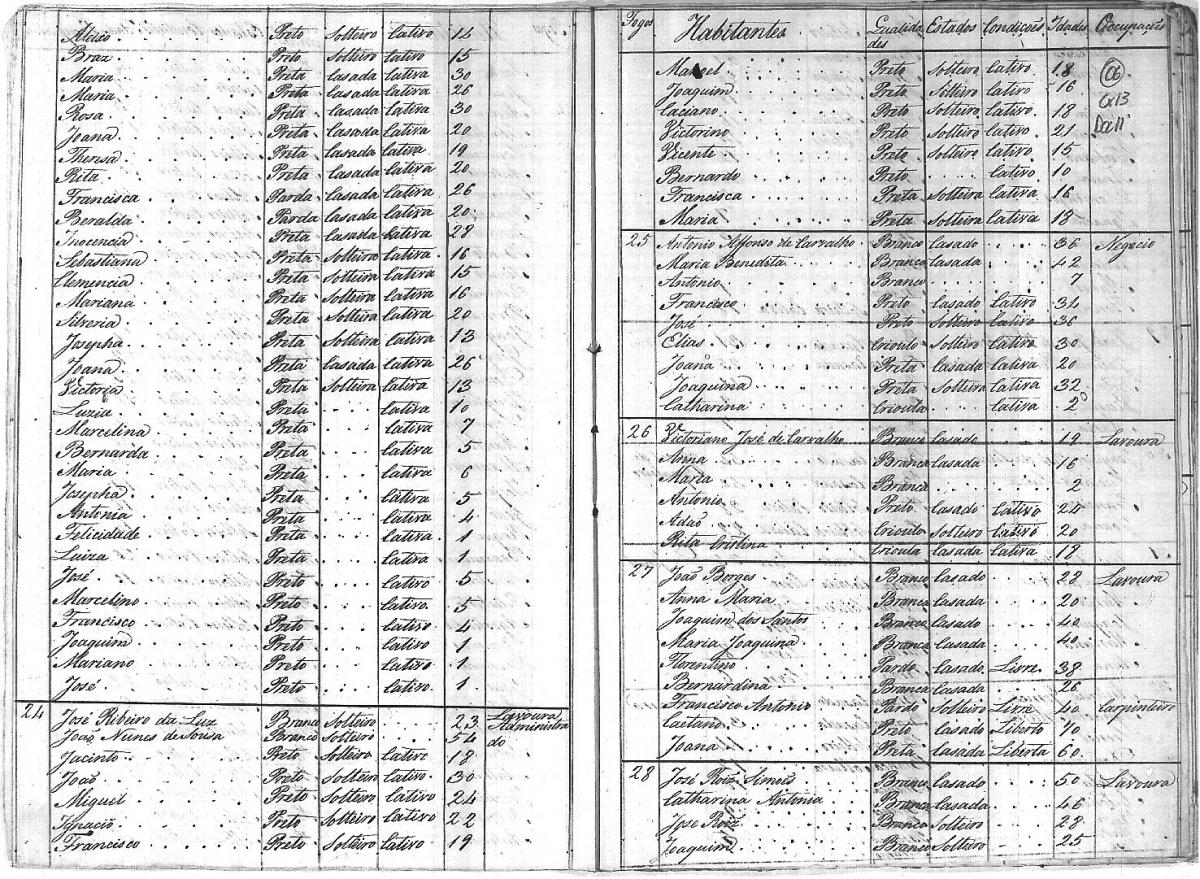 Aleixo Preto Solteiro Cativo 14
Braz Preto Solteiro Cativo 15
Maria Preta Casada Cativa 30
Maria Preta Casada Cativa 26
Rosa Preta Casada Cativa 30
Joana Preta Casada Cativa 20
Thereza Preta Casada Cativa 19
Rita Preta Casada Cativa 20
Francisca Parda Casada Cativa 26
Beralda Parda Casada Cativa 20
Inocencia Preta Casada Cativa 28
Sebastiana Preta Solteira Cativa 16
Clemencia Preta Solteira Cativa 15
Mariana Preta Solteira Cativa 16
Silveria Preta Solteira Cativa 20
Josepha Preta Solteira Cativa 13
Joana Preta Casada Cativa 26
Victoria Preta Solteira Cativa 13
Luzia Preta Cativa 10
Marcelina Preta Cativa 7
Bernarda Preta Cativa 5
Maria Preta Cativa 6
Josepha Preta Cativa 5
Antonia Preta Cativa 4
Felicidade Preta Cativa 1
Luiza Preta Cativa 1
José Preto Cativo 5
Marcelino Preto Cativo 5
Francisco Preto Cativo 4
Joaquim Preto Cativo 1
Mariano Preto Cativo 1
José Preto Cativo 1
24 José Ribeiro da Luz Branco Solteiro 23 Lavoura
João Nunes de Sousa Branco Solteiro 54 Administrado
Jacinto Preto Solteiro Cativo 18
João Preto Solteiro Cativo 30
Miguel Preto Solteiro Cativo 24
Ignacio Preto Solteiro Cativo 22
Francisco Preto Solteiro Cativo 19
Fogos Habitantes Qualidades Estados Condições Idades Occupações
Manoel Preto Solteiro Cativo 18 06
Joaquim Preto Solteiro Cativo 16
Cx13
Luciano Preto Solteiro Cativo 18
Victorino Preto Solteiro Cativo 21
Vicente Preto Solteiro Cativo 15
Bernardo Preto Cativo 10
Francisca Preta Solteira Cativa 16
Maria Preta Solteira Cativa 18
25 Antonio Affonso de Carvalho Branco Casado 36 Negocio
Maria Benedita Branca Casada 42
Antonio Branco 7
Francisco Preto Casado Cativo 31
José Preto Solteiro Cativo 36
Elias Crioulo Solteiro Cativo 30
Joana Preta Casada Cativa 20
Joaquina Preta Solteira Cativa 32
Catharina Crioula Cativa 2
26 Victoriano José de Carvalho Branco Casado 19 Lavoura
Anna Branca Casada 16
Maria Branca 2
Antonio Preto Casado Cativo 24
Adão Crioulo Solteiro Cativo 20
Rita Cristina Crioula Casada Cativa 18
27 João Borges Branco Casado 22 Lavoura
Anna Maria Branca Casada 20
Joaquim dos Santos Branco Casado 40
Maria Joaquina Branca Casada 40
Florentino Pardo Casado Livre 38
Bernardina Branca Casada 26
Francisco Antonio Pardo Solteiro Livre 40 Carpinteiro
Caetano Preto Casado Liberto 70
Joana Preta Casada Liberta 60
28 José Roiz Simois Branco Casado 50 Lavoura
Catharina Antonia Branca Casada 46
Jose Roiz Branco Solteiro 28
Joaquim Branco Solteiro 25